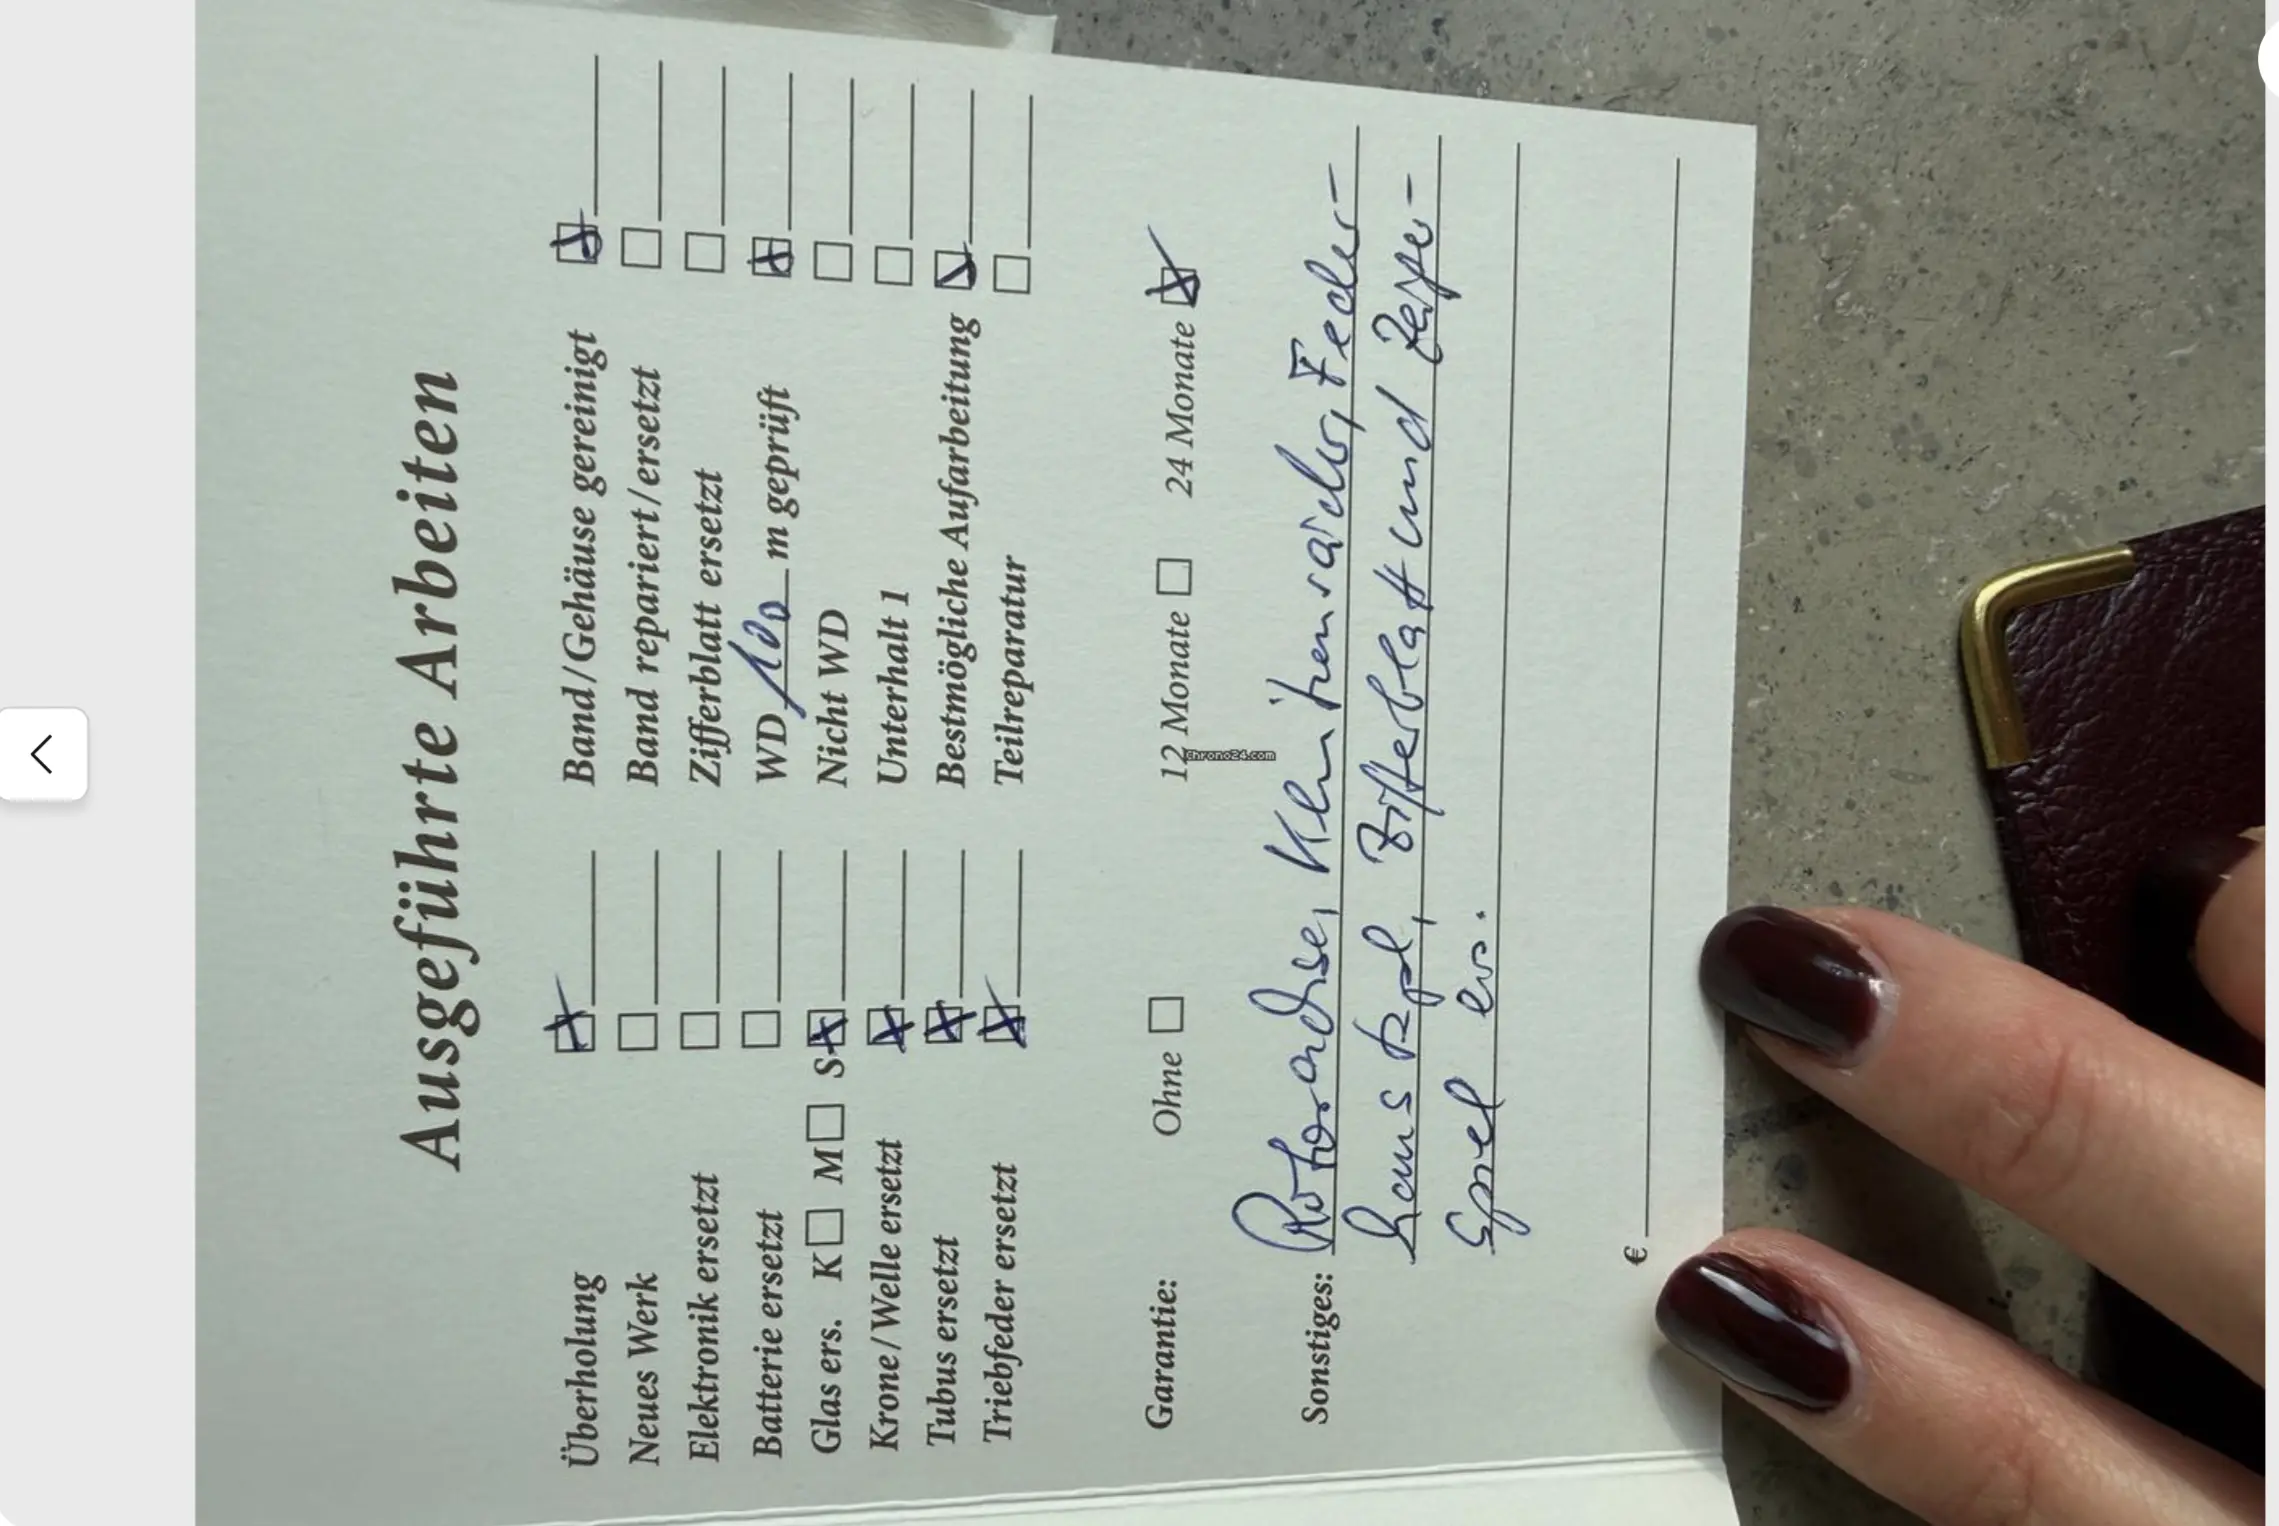 Ausgeführte Arbeiten
Überholung Band/Gehäuse gereinigt
Neues Werk Band repariert/ersetzt
Elektronik ersetzt Zifferblatt ersetzt
Batterie ersetzt WD 100 m geprüft
Glas ers. K M S Nicht WD
Krone/Welle ersetzt Unterhalt 1
Tubus ersetzt Bestmögliche Aufarbeitung
Triebfeder ersetzt Teilreparatur
Garantie: Ohne 12 Monate 24 Monate
Sonstiges: Rotorachse, Feder-
haus kpl, Zifferblatt und Zeiger-
Spiel
€
chrono24.com